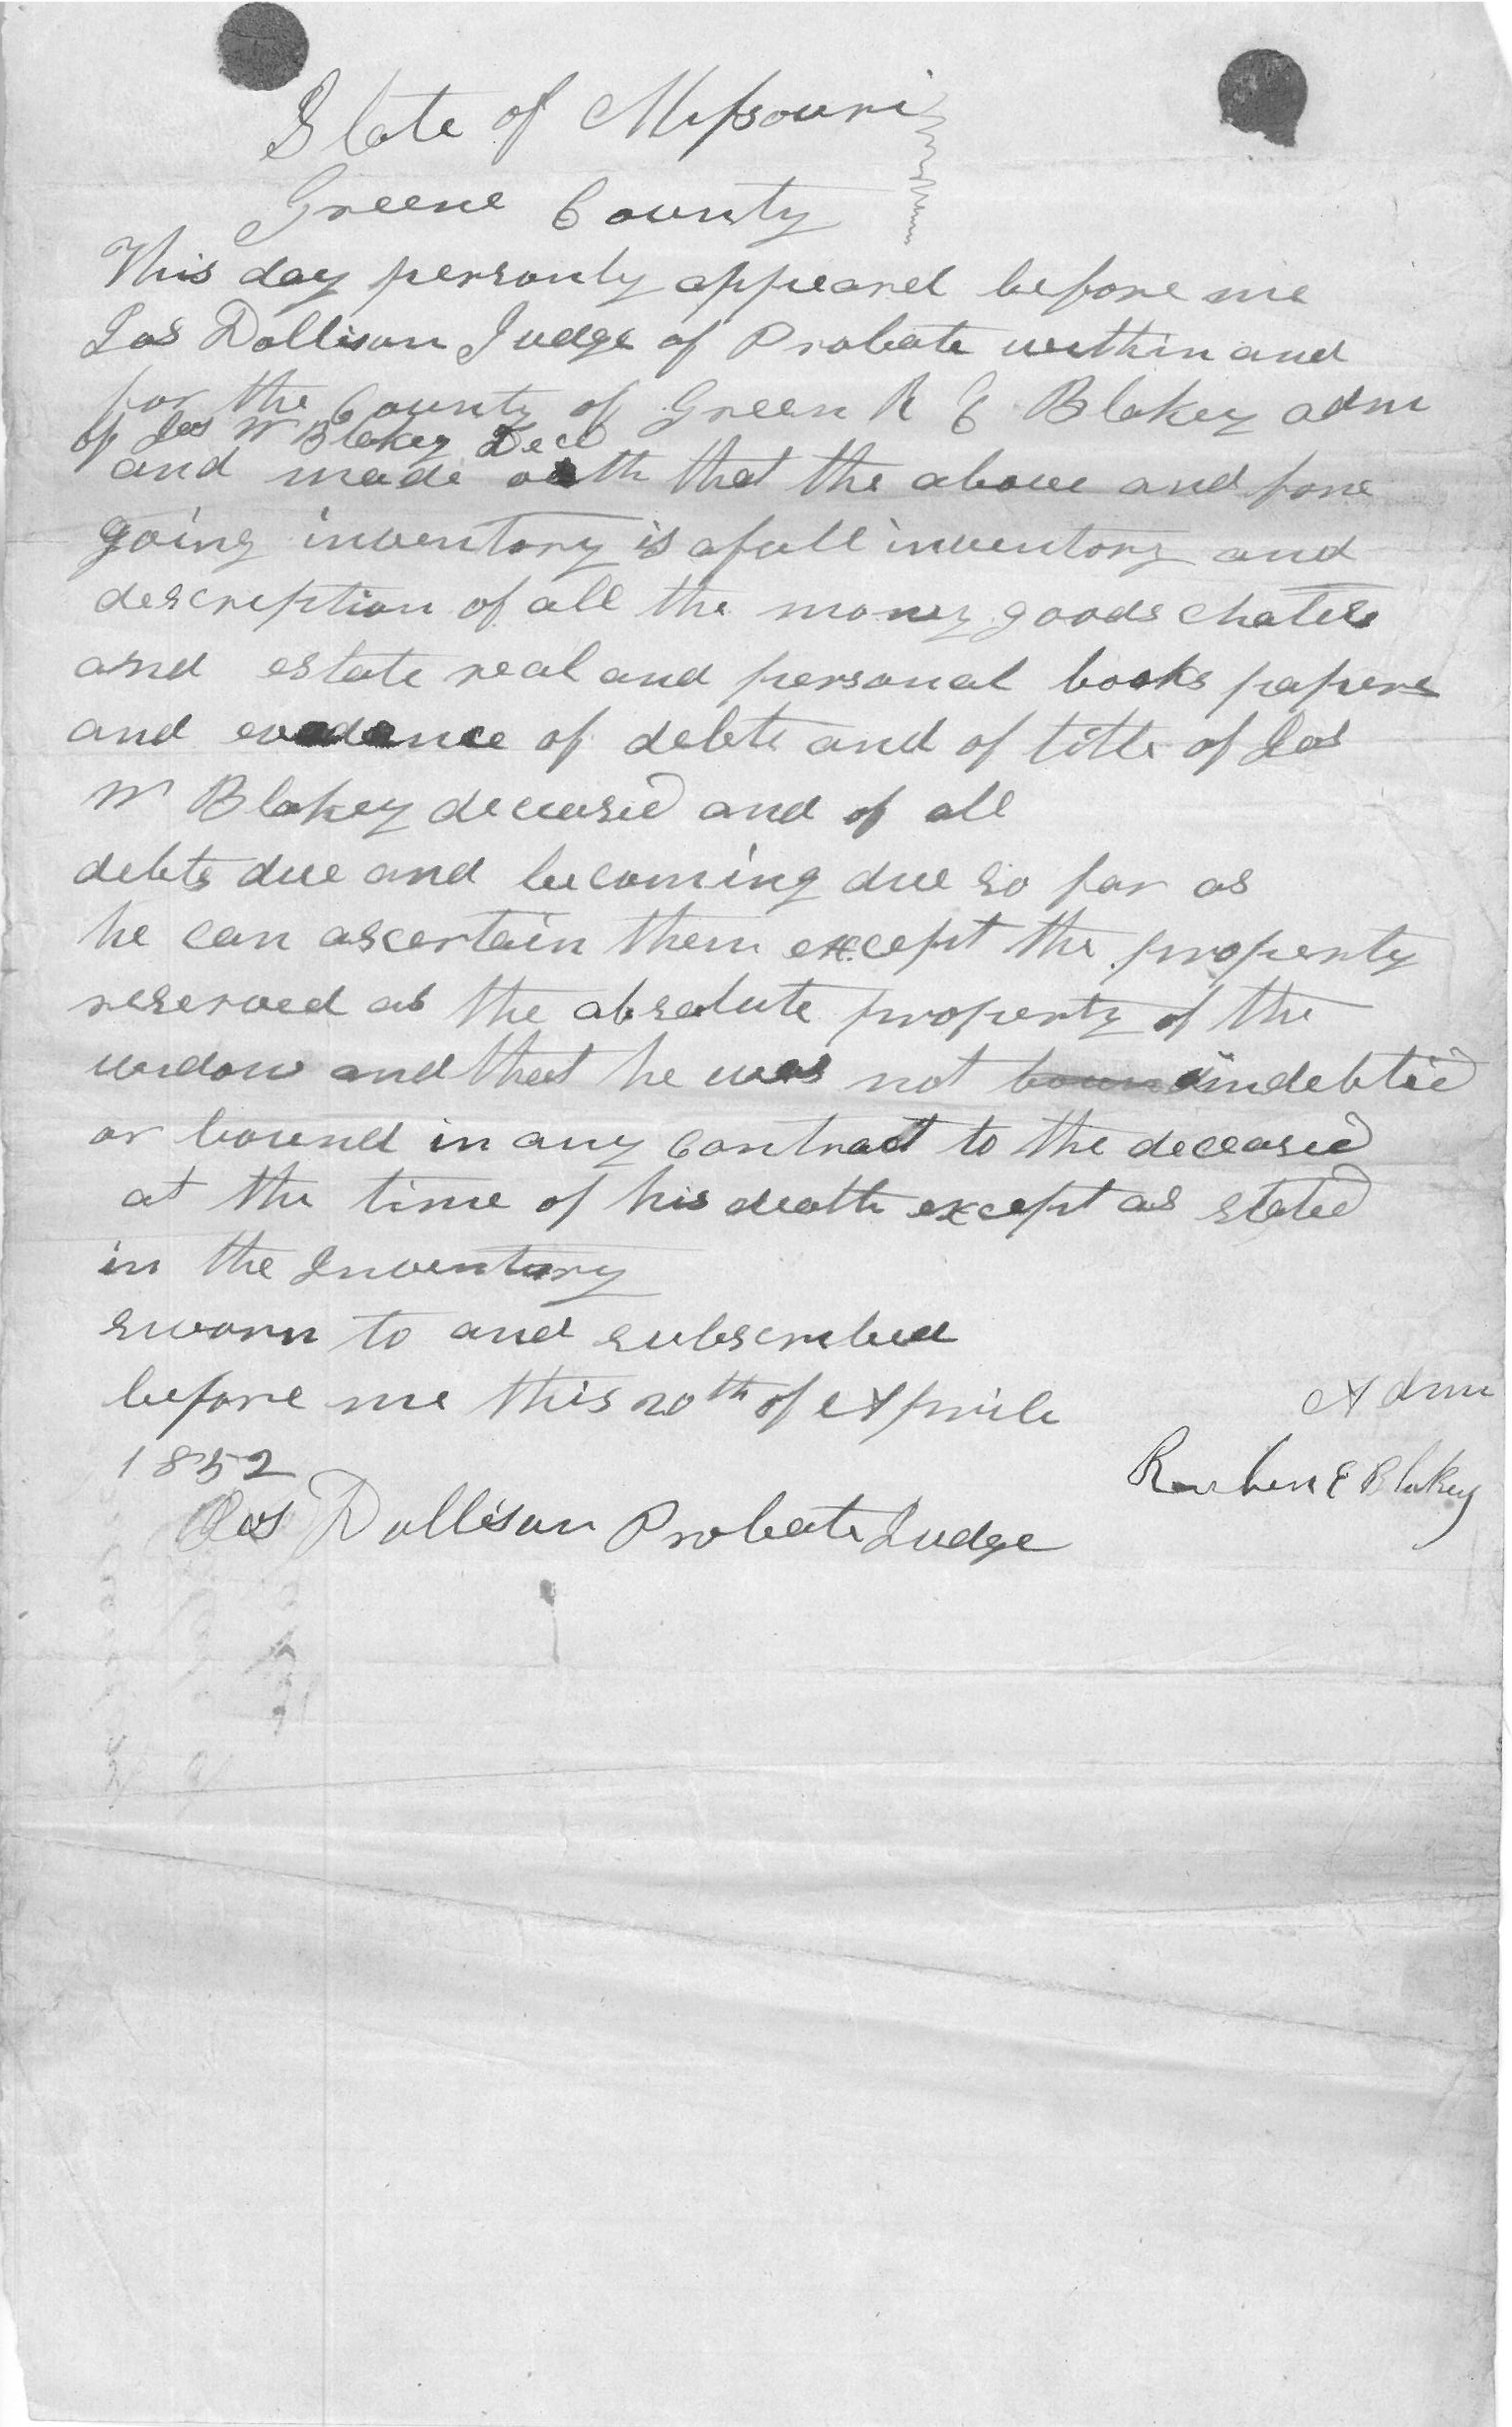 State of Missouri
Greene County
This day personly appeared before me
Jas Dollison Judge of Probate within and
for the County of Green R E Blakey adm
of Jas W Blakey Decd
and made oath that the above and fore
going inventory is a full inventory and
description of all the money goods chatels
and estate real and personal books papers
and evedence of debts and of title of Jas
W Blakey deceased and of all
debts due and becoming due so far as
he can ascertain them except the property
reserved as the absolute property of the
widow and that he was not boun indebted
or bound in any contract to the deceased
at the time of his death except as stated
in the Inventory
sworn to and subscribed
before me this 20th of Aprile
1852
Admr
Reuben E Blakey
Jas Dollison Probate Judge